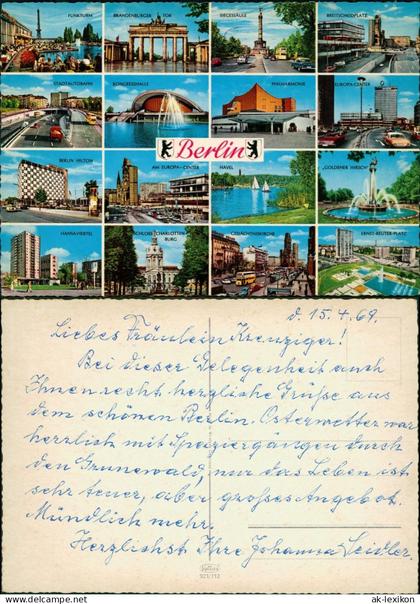 FUNKTURM
BRANDENBURGER TOR
SIEGESSÄULE
BREITSCHEIDPLATZ
STADTAUTOBAHN
KONGRESSHALLE
PHILHARMONIE
EUROPA-CENTER
Berlin
BERLIN HILTON
AM EUROPA-CENTER
HAVEL
„GOLDENER HIRSCH“
HANSAVIERTEL
SCHLOSS CHARLOTTEN-
BURG
GEDÄCHTNISKIRCHE
ERNST-REUTER-PLATZ
d. 15.4.69.
Liebes Fräulein Kreuziger!
Bei dieser Gelegenheit auch
Ihnen recht herzliche Grüße aus
dem schönen Berlin. Osterwetter war
herrlich mit Spaziergängen durch
den Grunewald, nur das Leben ist
sehr teuer, aber großes Angebot.
Mündlich mehr.
Herzlichst Ihre Johanna Seidler.
921/112
© ak-lexikon.de